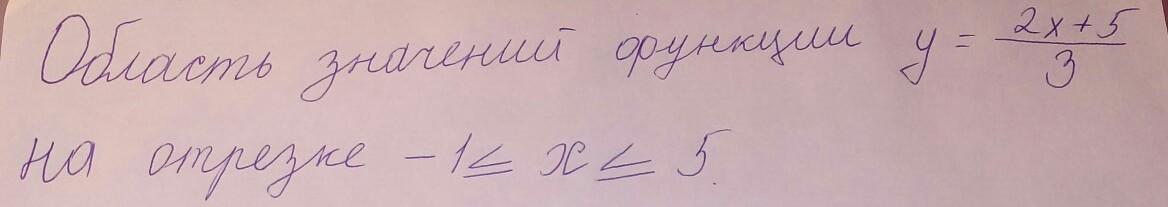 Область значений функции y = \frac{2x+5}{3}
на отрезке -1 ≤ x ≤ 5.